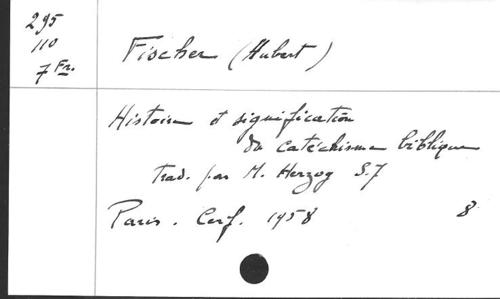 295
110
7 Fi.
Fischer (Hubert)
Histoire et signification
du catéchisme biblique
trad. par M. Herzog S.J
Paris. Cerf. 1958 8